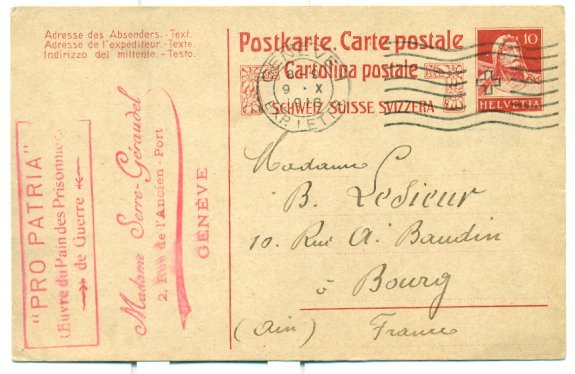 Adresse des Absenders.-Text.
Adresse de l'expéditeur.-Texte.
Indirizzo del mittente.-Testo.
"PRO PATRIA"
Œuvre du Pain des Prisonniers
de Guerre
Madame Serre-Géraudel
2, Rue de l'Ancien-Port
GENÈVE
Postkarte. Carte postale
Cartolina postale
SCHWEIZ SUISSE SVIZZERA
GENÈVE
9 · X
EXP. LETT.
10
HELVETIA
Madame
B. LeSieur
10. Rue A. Baudin
à Bourg
(Ain) France